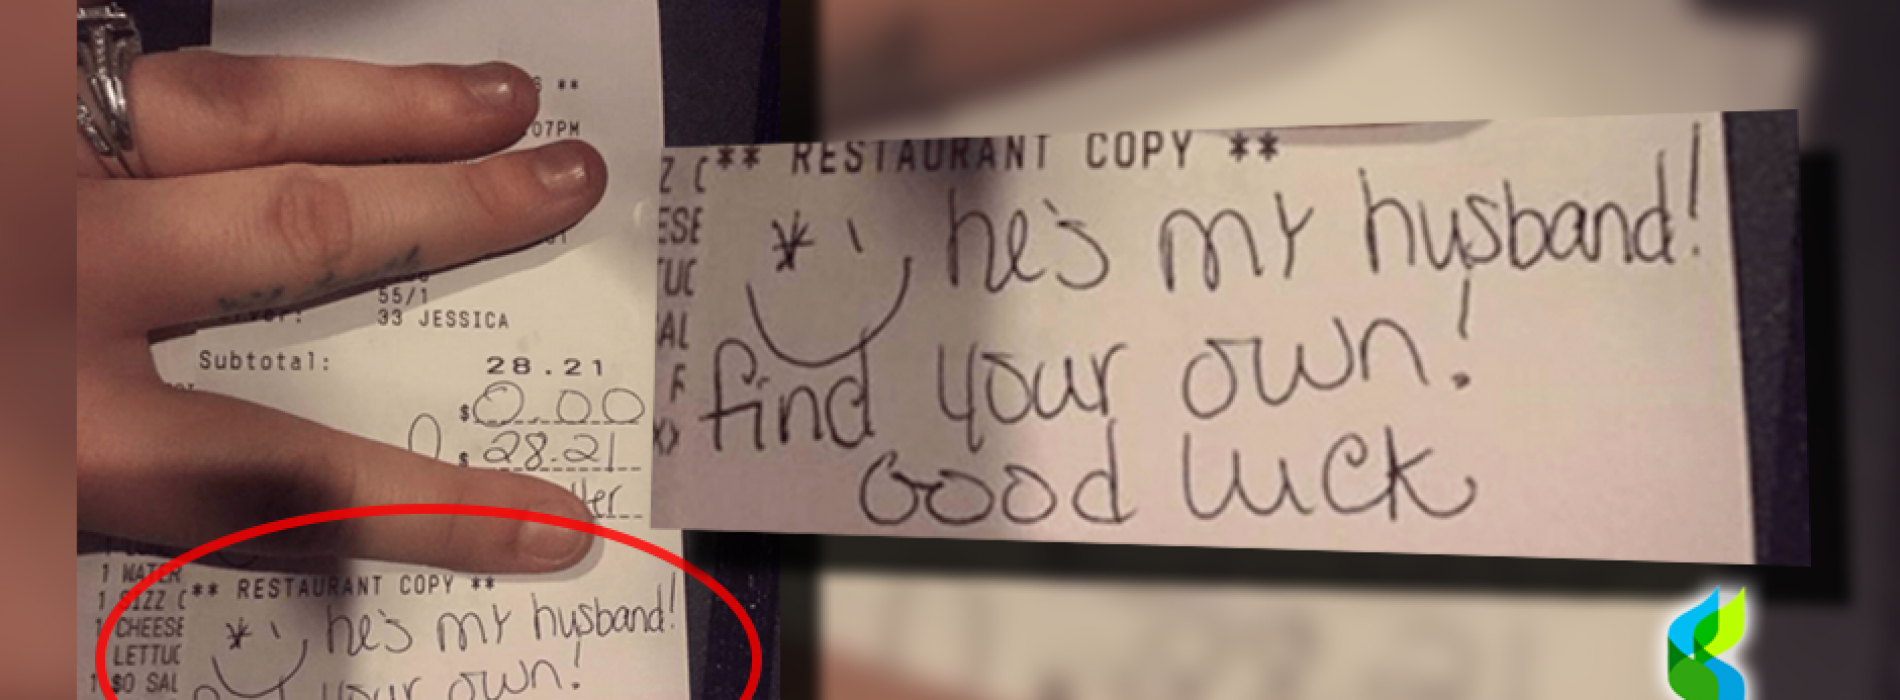 07PM
55/1
33 JESSICA
Subtotal: 28.21
$ 0.00
$ 28.21
1 WATER
1 SIZZ C
1 CHEESE
LETTUC
1 $0 SAL
** RESTAURANT COPY **
he's my husband!
your own!
** RESTAURANT COPY **
he's my husband!
find your own!
Good luck